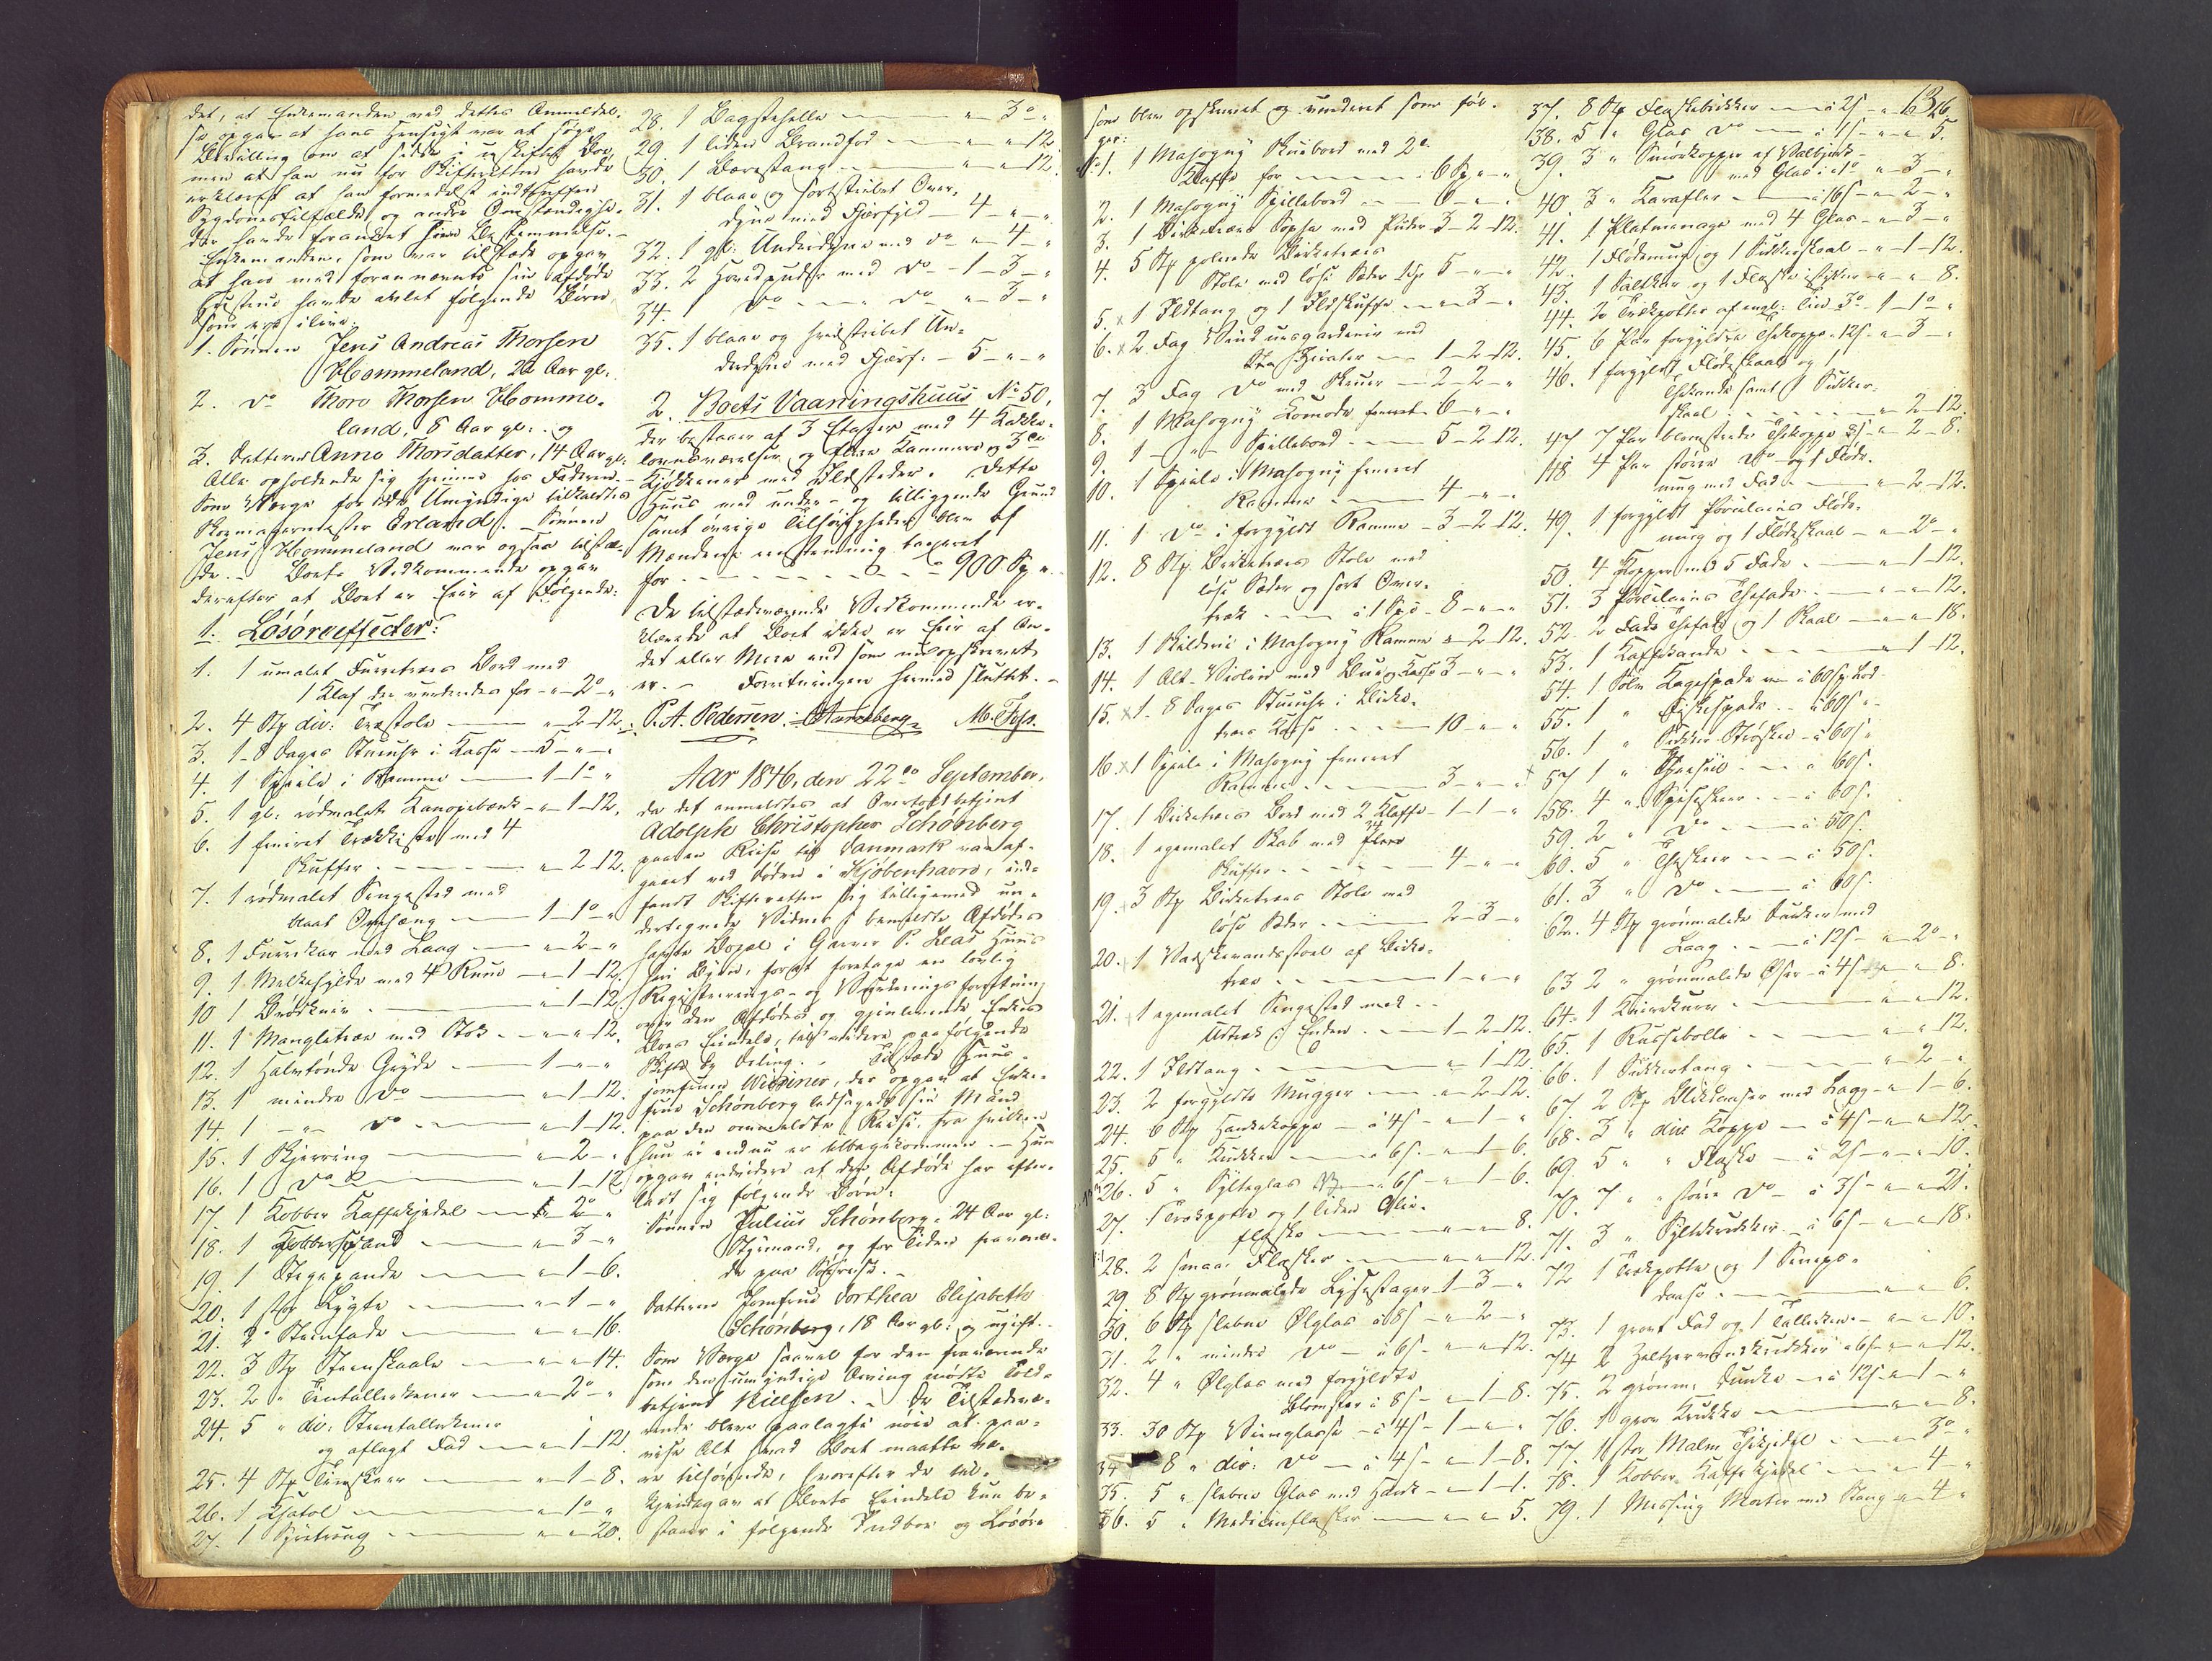 det, at Enkemanden ved dettes Anmeldel-
se opgav at hans Hensigt var at søge
Bevilling om at sidde i uskiftet Boe,
men at han nu for Skifteretten havde
erklæret at han formedelst indtruffen
Sygdomstilfælde og andre Omstændighe-
der havde forandret sin Bestemmelse.
Enkemanden, som var tilstæde opgav
at han med forannævnte sin afdøde
Hustrue havde avlet følgende Børn,
som ere i live:
1. Sønnen Jens Andreas Thorsen
Hommeland, 22 Aar gl:
2. do Thore Thorsen Homme-
land, 8 Aar gl: og
3. Datteren Anne Thorsdatter, 14 Aar gl:
Alle opholdende sig hjemme hos Faderen.
Som Værge for de Umyndige tilkaldtes
Skomagermester Erland. Sønnen
Jens Hommeland var ogsaa tilstæ-
de. Boets Vedkommende opgav
derefter at Boet er Eier af Følgende:
1. Løsøreeffecter:
1. 1 umalet Furretræes Bord med
1 Klaf der vurderedes for - " - 2 - "
2. 4 Stk div: Træstole - " - 2 - 12.
3. 1 - 8 Dages Stueuhr i Kasse - 5 - " - "
4. 1 Speile i Ramme - 1 - 1 - "
5. 1 gl: rødmalet Kanapebænk - " - 1 - 12.
6. 1 finiret Trækkiste med 4
Skuffer - " - 2 - 12.
7. 1 rødmalet Sengested med
blaat Omhæng - 1 - 1 - "
8. 1 Furukar med Laag - " - 2 - "
9. 1 Melkehylde med 4 Rum - " - 1 - 12.
10. 1 Brødkniv - " - 1 - 12.
11. 1 Mangletræe med Stok - " - " - 12.
12. 1 Halvtønde Gryde - 1 - " - "
13. 1 mindre do - " - 1 - 12.
14. 1 - " - do - " - 1 - 12.
15. 1 Kjerring - " - 2 - "
16. 1 do - " - 1 - 12.
17. 1 Kobber Kaffekjedel - " - 2 - "
18. 1 Kobberspand - " - 3 - "
19. 1 Stegepande - " - 1 - 6.
20. 1 stor Lygte - " - 1 - "
21. 2 Steenfade - " - " - 16.
22. 3 Stk Steenskaale - " - " - 14.
23. 2 " Tintallerkener - " - 2 - "
24. 5 " div: Steentallerkener
og aflagt Fad - " - 1 - 12.
25. 4 Stk Tinskeer - " - 1 - 8.
26. 1 - " - 1 - "
27. 1 - " - " - 20.
28. 1 Bagstehelle - " - 3 - "
29. 1 liden Brandfod - " - " - 12.
30. 1 Børestang - " - " - 12.
31. 1 blaae og sortstribet Over-
dyne med Fjærfyld - 4 - " - "
32. 1 gl: Underdyne med do - " - 4 - "
33. 2 Hovedpuder med do - 1 - 3 - "
34. 1 do - do - " - 3 - "
35. 1 blaae og hvidstribet Un-
derdyne med Fjærf: - 5 - " - "
2. Boets Vaaningshuus No 50,
der bestaaer af 3 Etager med 4 Kakke-
lovnsværelser og flere Kammere og 3de
Kjøkkener med Ildsteder. Dette
Huus med under- og tilliggende Grund
samt øvrige Tilhørigheder blev af
Mændene eenstemmig taxeret
for - 900 Sp " "
De tilstædeværende Vedkommende er-
klærede at Boet ikke er Eier af An-
det eller Mere end som nu opskrevet
er. Forretningen hermed sluttet.
P. A. Pedersen. Aareberg. M. Fej.
Aar 1846, den 22de September,
da det anmeldtes at Overtoldbetjent
Adolph Christopher Schønberg
paa en Reise til Danmark var af-
gaaet ved Døden i Kjøbenhavn, ind-
fandt Skifteretten sig tilligemed un-
dertegnede Vidner i bemeldte Afdødes
havte Bopæl i Garver P. Leas Huus
i Byen, for at foretage en lovlig
Registrerings- og Vurderingsforretning
over den Afdødes og gjenlevende Enkes
Boes Eiendele, til videre paafølgende
Skifte og Deling. Tilstæde Huus-
jomfrue Wiesener, der opgav at Enke-
frue Schønberg ledsagede sin Mand
paa den ommeldte Reise, fra hvilken
hun ei endnu er tilbagekommen. Hun
opgav endvidere at den Afdøde har efter-
ladt sig følgende Børn:
Sønnen Julius Schønberg, 24 Aar gl:
Styrmand, og for Tiden fraværen-
de paa Søereise.
Datteren Jomfrue Dorthea Elisabeth
Schønberg, 18 Aar gl: og ugift.
Som Værge saavel for den fraværende
som den umyndige Arving mødte Told-
betjent Nielsen. De Tilstedevæ-
rende bleve paalagte nøie at paa-
vise Alt hvad Boet maatte væ-
re tilhørende, hvorefter de til-
kjendegav at Boets Eiendele kun be-
staaer i følgende Indboe og Løsøre
som blev opskrevet og vurderet som føl-
ger:
No 1. 1 Mahogny Skuebord med 2
Klaffe for - 6 Sp " - "
2. 1 Mahogny Spillebord - 6 - " - "
3. 1 Birketræes Sopha med Puder 3 - 2 - 12.
4. 5 Stk polerede Birketræes
Stole med løse Sæder 5 - " - "
5. x 1 Ildtang og 1 Ildskuffe - " - 3 - "
6. x 2 Fag Vinduesgardiner med
1 - 2 - 12.
7. 3 Fag do med Skruer - 2 - 2 - "
8. 1 Mahogny Komode feneret 6 - " - "
9. 1 - " - Spillebord - 5 - 2 - 12.
10. 1 Speile i Mahogny feneret
Ramme - 4 - " - "
11. 1 do i forgyldt Ramme - 3 - 2 - 12.
12. 8 Stk Birketræes Stole med
løse Sæder og sort Over-
træk - à 1 Sp - 8 - " - "
13. 1 Skilderie i Mahogny Ramme " - 2 - 12.
14. 1 Alt-Violin med Bue og Kasse 3 - " - "
15. x 1 - 8 Dages Stueuhr i Birke-
træes Kasse - 10 - " - "
16. x 1 Speile i Mahogny feneret
Ramme - 3 - " - "
17. 1 Birketræes Bord med 2 Klaffe 1 - 1 - "
18. 1 egemalet Skab med flere
Skuffer - 4 - " - "
19. 3 Stk Birketræes Stole med
løse Sæder - 2 - 3 - "
20. 1 Vadskevandsstoel af Birke-
træe - 1 - " - "
21. 1 egemalet Sengested med
Udtræk i Enden - 1 - 2 - 12.
22. 1 Ildtang - " - 1 - 12.
23. 2 forgyldte Mugger - " - 2 - 12.
24. 6 Stk Hankekoppe - à 4 s - " - 1 - "
25. 5 " Krukker - 6 s - " - 1 - 6.
26. 5 " Sylteglas - 6 s - " - 1 - 6.
27. 1 Theepotte og 1 liden Olie-
flaske - " - " - 8.
28. 2 smaae Flasker - " - " - 12.
29. 8 Stk grønmalede Lysestager 1 - 3 - "
30. 6 Stk slebne Ølglas à 8 s - " - 2 - "
31. 2 " mindre do - à 6 s - " - " - 12.
32. 4 " Ølglas med forgyldte
Blomster à 8 s - " - 1 - 8.
33. 30 Stk Viinglasse - à 4 s - 1 - " - "
34. 8 " div: do - à 4 s - " - 1 - 8.
35. 5 " slebne Glas med Hank - " - 1 - 1.
36. 5 " Medicinflasker - " - " - 5.
37. 8 Stk Flaskebrikker - à 2 s - " - " 16.
38. 5 " Glas do - à 1 s - " - " 5.
39. 3 " Smørkopper af Valbjerk
med Glas i - " - 3 - "
40. 3 " Karafler - à 16 s - " - 2 - "
41. 1 Platmenage med 4 Glas - " - 3 - "
42. 1 Flødemug og 1 Sukkerskaal - " - 1 - 12.
43. 1 Saltkar og 1 - " - " - 8.
44. 2 Theepotter af engl: Tin 3 - 1 - 1 - "
45. 6 Par forgyldte Thekoppe - 12 s - " - 3 - "
46. 1 forgyldt Flødeskaal og 1
Thekande samt 1 Sukker-
skaal - " - 2 - 12.
47. 7 Par blomstrede Thekoppe 8 s - " - 2 - 8.
48. 4 Par større do og 1 Fløde-
mug med Fad - " - 2 - 12.
49. 1 forgyldt Porcelains Fløde-
mug og 1 Flødeskaal - " - 2 - "
50. 4 Kopper med 5 Fade - " - 1 - 12.
51. 3 Porcelains Thefade - " - " - 12.
52. 2 Thefade og 1 Skaal - " - " - 18.
53. 1 Kaffekande - " - 1 - 12.
54. 1 Sølv Kagespade - à 60 s pr Lod.
55. 1 " Fiskespade - à 60 s "
56. 1 " Sukker Strøskee - à 60 s "
57. 1 " Theesie - à 60 s.
58. 4 " Spiseskeer - à 60 s.
59. 2 " do - à 50 s.
60. 5 " Theskeer - à 50 s.
61. 3 " do - à 60 s.
62. 4 Stk grønmalede Dunker med
Laag - à 12 s - " - 2 - "
63. 2 " grønmalede Øser - à 4 s - " - 8.
64. 1 Knivkurv - " - " - 12.
65. 1 Russebolle - " - " - 12.
66. 1 Sukkertang - " - 2 - "
67. 2 Stk Blikdaaser med Laag - " - 1 - 6.
68. 3 " div Koppe - à 4 s - " - " - 12.
69. 5 " " Flaske - à 2 s - " - " - 10.
70. 7 " " større do - à 3 s - " - " - 21.
71. 3 " Syltekrukker - à 6 s - " - " - 18.
72. 1 Theepotte og 1 Senneps-
daase - " - " - 6.
73. 1 grovt Fad og 1 Tallerken - " - " - 10.
74. 2 Zeltzervandskrukker à 6 s - " - " - 12.
75. 2 grønne Dunke - à 12 s - " - 1 - "
76. 1 grov Krukke - " - " - 8.
77. 1 stor Malm Thekjedel - " - 3 - "
78. 1 Kobber Kaffekjedel - " - 4 - "
79. 1 Messing Morter med Stang - " - 4 - "